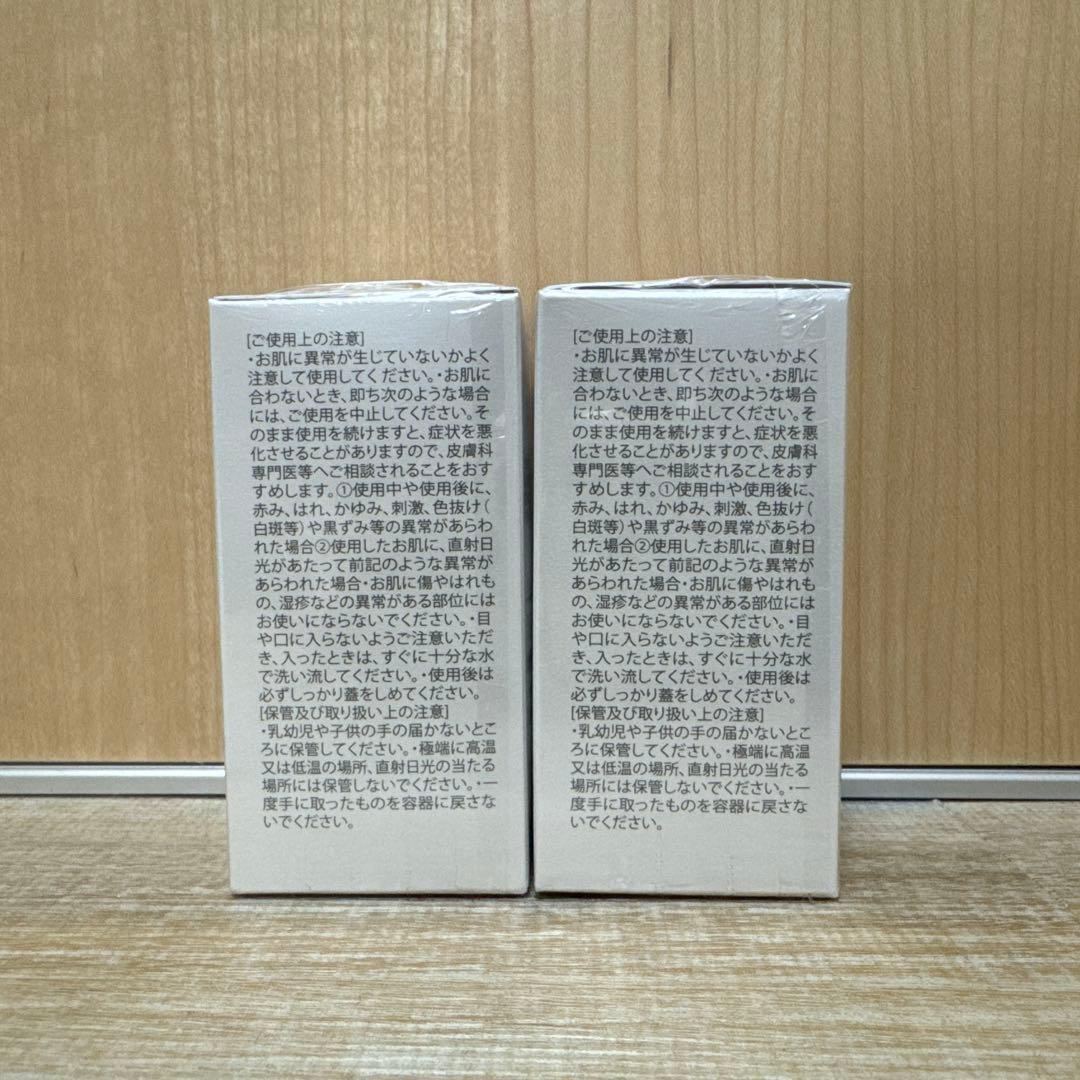 [ご使用上の注意]
・お肌に異常が生じていないかよく
注意して使用してください。・お肌に
合わないとき、即ち次のような場合
には、ご使用を中止してください。そ
のまま使用を続けますと、症状を悪
化させることがありますので、皮膚科
専門医等へご相談されることをおす
すめします。①使用中や使用後に、
赤み、はれ、かゆみ、刺激、色抜け（
白斑等）や黒ずみ等の異常があらわ
れた場合②使用したお肌に、直射日
光があたって前記のような異常が
あらわれた場合・お肌に傷やはれも
の、湿疹などの異常がある部位には
お使いにならないでください。・目
や口に入らないようご注意いただ
き、入ったときは、すぐに十分な水
で洗い流してください。・使用後は
必ずしっかり蓋をしめてください。
[保管及び取り扱い上の注意]
・乳幼児や子供の手の届かないとこ
ろに保管してください。・極端に高温
又は低温の場所、直射日光の当たる
場所には保管しないでください。・一
度手に取ったものを容器に戻さな
いでください。
[ご使用上の注意]
・お肌に異常が生じていないかよく
注意して使用してください。・お肌に
合わないとき、即ち次のような場合
には、ご使用を中止してください。そ
のまま使用を続けますと、症状を悪
化させることがありますので、皮膚科
専門医等へご相談されることをおす
すめします。①使用中や使用後に、
赤み、はれ、かゆみ、刺激、色抜け（
白斑等）や黒ずみ等の異常があらわ
れた場合②使用したお肌に、直射日
光があたって前記のような異常が
あらわれた場合・お肌に傷やはれも
の、湿疹などの異常がある部位には
お使いにならないでください。・目
や口に入らないようご注意いただ
き、入ったときは、すぐに十分な水
で洗い流してください。・使用後は
必ずしっかり蓋をしめてください。
[保管及び取り扱い上の注意]
・乳幼児や子供の手の届かないとこ
ろに保管してください。・極端に高温
又は低温の場所、直射日光の当たる
場所には保管しないでください。・一
度手に取ったものを容器に戻さな
いでください。